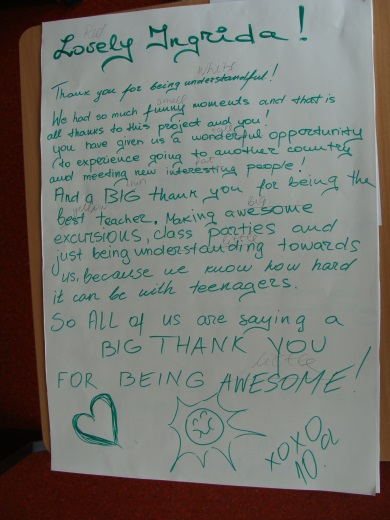 Lovely Ingrida!
Thank you for being understandful!
We had so much funny moments and that is
all thanks to this project and you!
you have given us a wonderful opportunity
to experience going to another country
and meeting new interesting people!
And a BIG thank you for being the
best teacher, Making awesome
excursions, class parties and
just being understanding towards
us, because we know how hard
it can be with teenagers.
So ALL of us are saying a
BIG THANK YOU
FOR BEING AWESOME!
XOXO
10.a